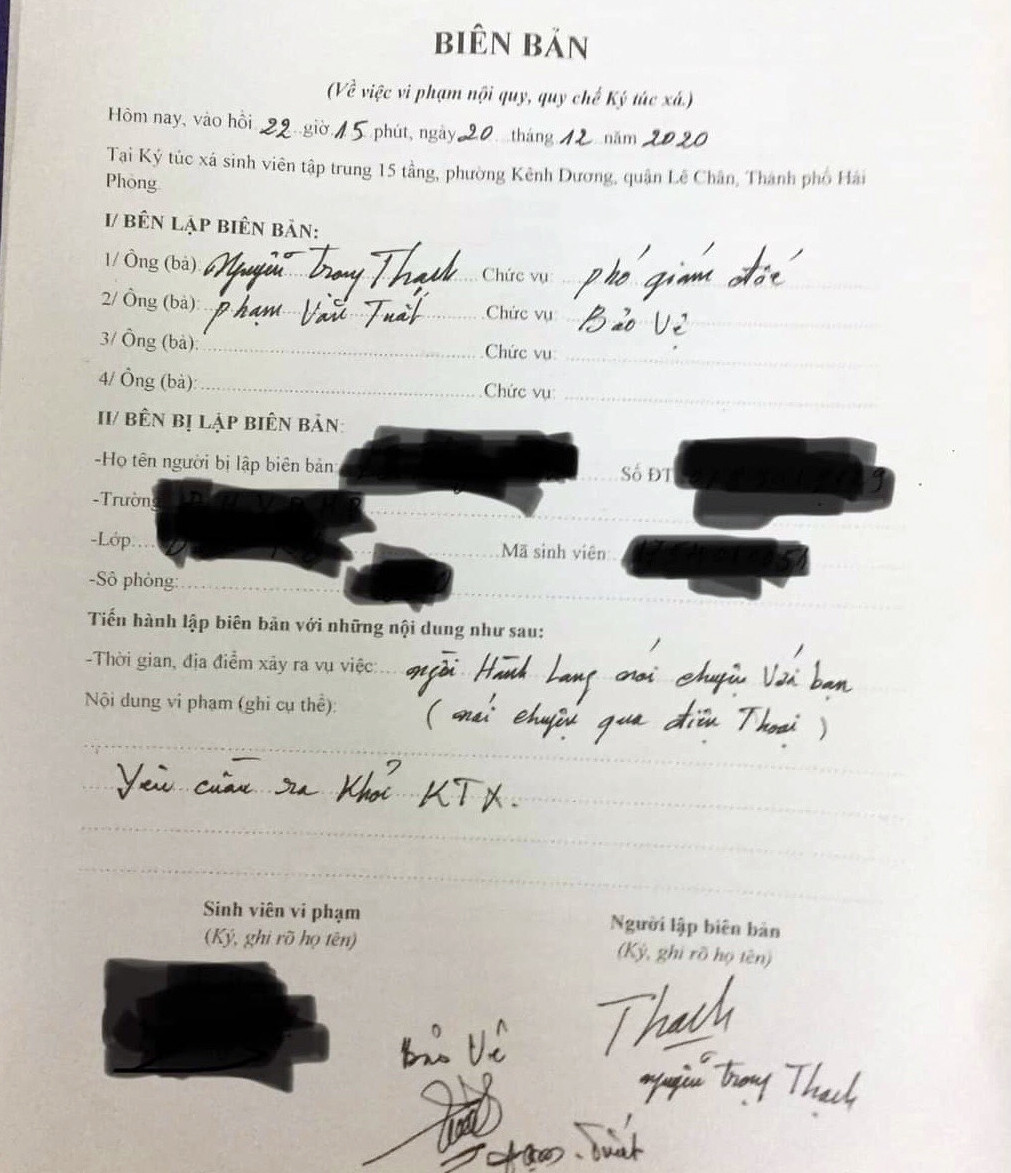 BIÊN BẢN
(Về việc vi phạm nội quy, quy chế Ký túc xá.)
Hôm nay, vào hồi 22 giờ 15 phút, ngày 20 tháng 12 năm 2020
Tại Ký túc xá sinh viên tập trung 15 tầng, phường Kênh Dương, quận Lê Chân, Thành phố Hải
Phòng
I/ BÊN LẬP BIÊN BẢN:
1/ Ông (bà): Nguyễn Trọng Thạch Chức vụ: phó giám đốc
2/ Ông (bà): Phạm Văn Tuất Chức vụ: Bảo Vệ
3/ Ông (bà): Chức vụ:
4/ Ông (bà): Chức vụ:
II/ BÊN BỊ LẬP BIÊN BẢN:
-Họ tên người bị lập biên bản: Số ĐT
-Trường
-Lớp Mã sinh viên:
-Số phòng:
Tiến hành lập biên bản với những nội dung như sau:
-Thời gian, địa điểm xảy ra vụ việc: ngồi Hành Lang nói chuyện Với bạn
Nội dung vi phạm (ghi cụ thể): (nói chuyện qua điện Thoại)
Yêu cầu ra khỏi KTX.
Sinh viên vi phạm Người lập biên bản
(Ký, ghi rõ họ tên) (Ký, ghi rõ họ tên)
Thạch
Bảo Vệ
Nguyễn Trọng Thạch
Tuất